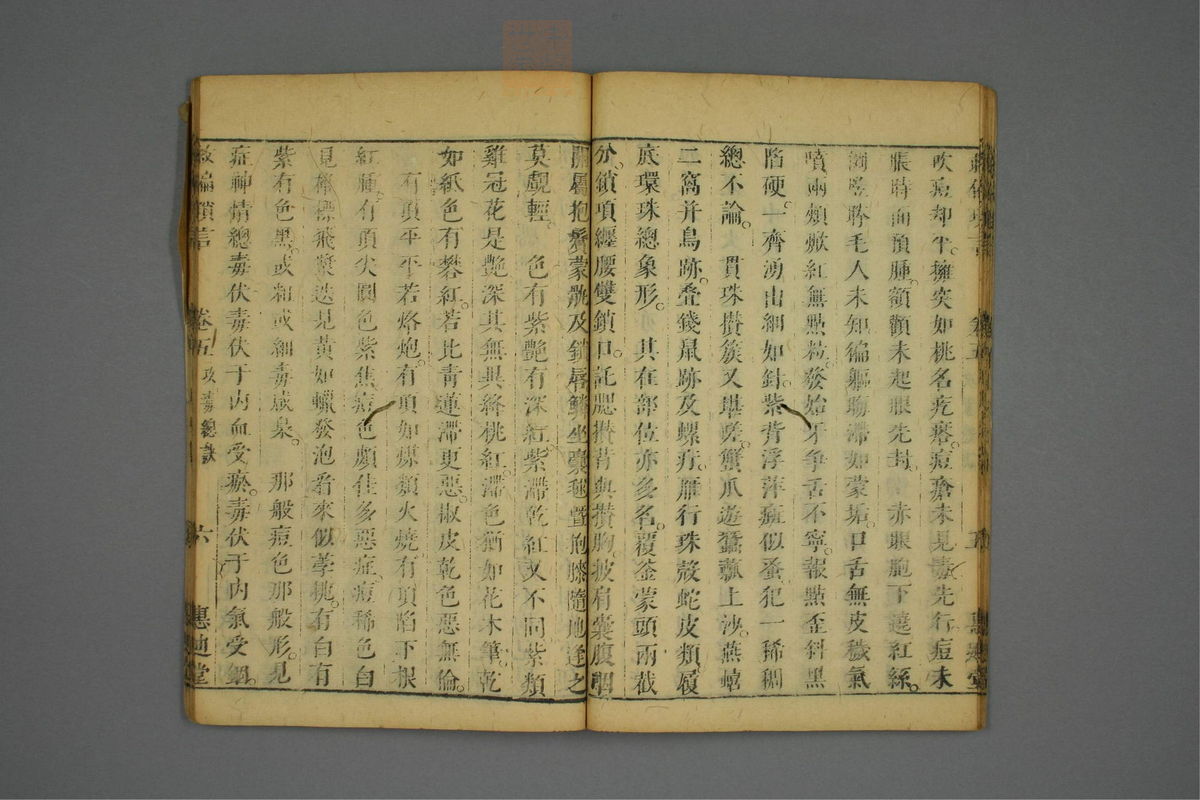 吹痘却平擁突如桃名疙瘩痘瘡未見毒先行痘未
脹時面預腫額顴未起眼先封赤眼胞下遶紅絲
毛人未知徧軀 滯如蒙垢口舌無皮穢氣
噴兩頰 紅無點粒發始牙爭舌不寧報點歪斜黑
陷硬一齊湧出細如針紫背浮萍 似蚤犯一稀稠
總不論 貫珠攢簇又堪嗟蟹爪遊蠶瓢上沙燕
二窩并鳥跡疊錢鼠跡及螺疔雁行珠殼蛇皮類履
底環珠總象形 其在部位亦多名覆釜蒙頭兩截
分鎖項纏腰雙鎖口託腮攢背與攢胸披肩囊腹咽
關層抱鬢蒙骯及鎖唇鱗坐囊毬暨 膝隨地逢之
莫覷輕 色有紫艷有深紅紫滯乾紅又不同紫類
雞冠花是艷深其無異絳桃紅滯色猶如花木筆乾
如紙色有礬紅若比青蓮滯更惡椒皮乾色惡無倫
有頂平平若烙炮有頂如煤類火燒有頂陷下根
紅腫有頂尖圓色紫焦痘色頗佳多惡症痘稀色白
飛漿迭見黃如蠟發泡看來似葶桃有白有
紫有色黑或粗或細毒咸梟 那般痘色那般形見
症神情總毒伏毒伏于內血受瘀毒伏于內氣受錮
救偏瑣言 卷五 攻毒總訣 六 惠迪堂